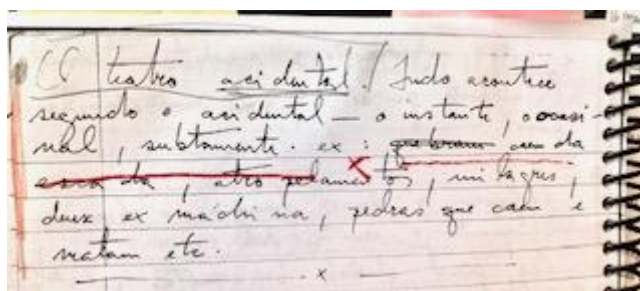 O teatro acidental / Tudo acontece
segundo o acidental — o instante, o ocasio-
nal, subtamente. ex: quebram caem da
escada, atropelamentos, milagres,
deux ex máchina, pedras que caem e
matam etc.
— x —